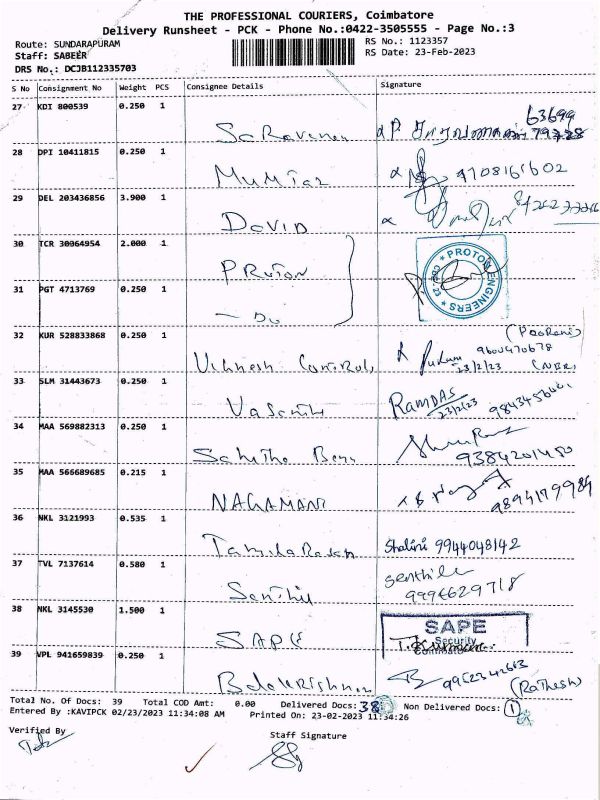 THE PROFESSIONAL COURIERS, Coimbatore
Delivery Runsheet - PCK - Phone No.:0422-3505555 - Page No.:3
Route: SUNDARAPURAM
RS No.: 1123357
Staff: SABEER
RS Date: 23-Feb-2023
DRS No.: DCJB112335703
S No Consignment No Weight PCS Consignee Details Signature
27 KDI 800539 0.250 1 Saravanan 63699
28 DPI 10411815 0.250 1 Mumtaz 9708161602
29 DEL 203436856 3.900 1 DAVID
30 TCR 30064954 2.000 1 PROTON PROTON ENGINEERS
31 PGT 4713769 0.250 1 - Do
32 KUR 528833868 0.250 1 Vighnesh Controls (Poorani) 9600470678
23/2/23 (NBR)
33 SLM 31443673 0.250 1 Vasanth RAMDAS 23/2/23
34 MAA 569882313 0.250 1 9384201480
35 MAA 566689685 0.215 1 NAGAMANI 9894179984
36 NKL 3121993 0.535 1 Shalini 9944048142
37 TVL 7137614 0.580 1 Senthil senthil 9996629718
38 NKL 3145530 1.500 1 SAPE SAPE
Security
39 VPL 941659839 0.250 1 Balakrishnan (Rathesh)
Total No. Of Docs: 39 Total COD Amt: 0.00 Delivered Docs: 38 Non Delivered Docs: 1
Entered By :KAVIPCK 02/23/2023 11:34:08 AM Printed On: 23-02-2023 11:34:26
Verified By
Staff Signature